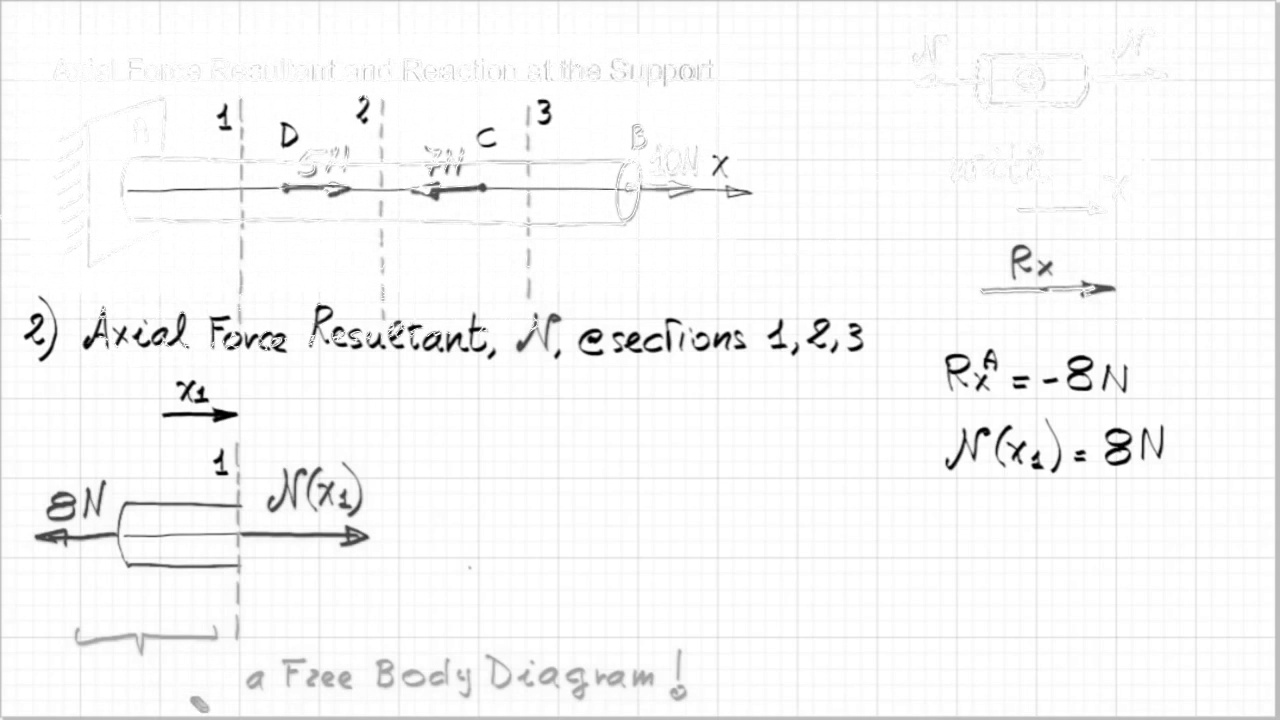 Axial Force Resultant and Reaction at the Support
N N
A 1 D 5N 2 7N C 3 B 10N x
with
x
Rx
2) Axial Force Resultant, N, @sections 1, 2, 3
RxA = -8N
x1
N(x1) = 8N
1
8N N(x1)
a Free Body Diagram!